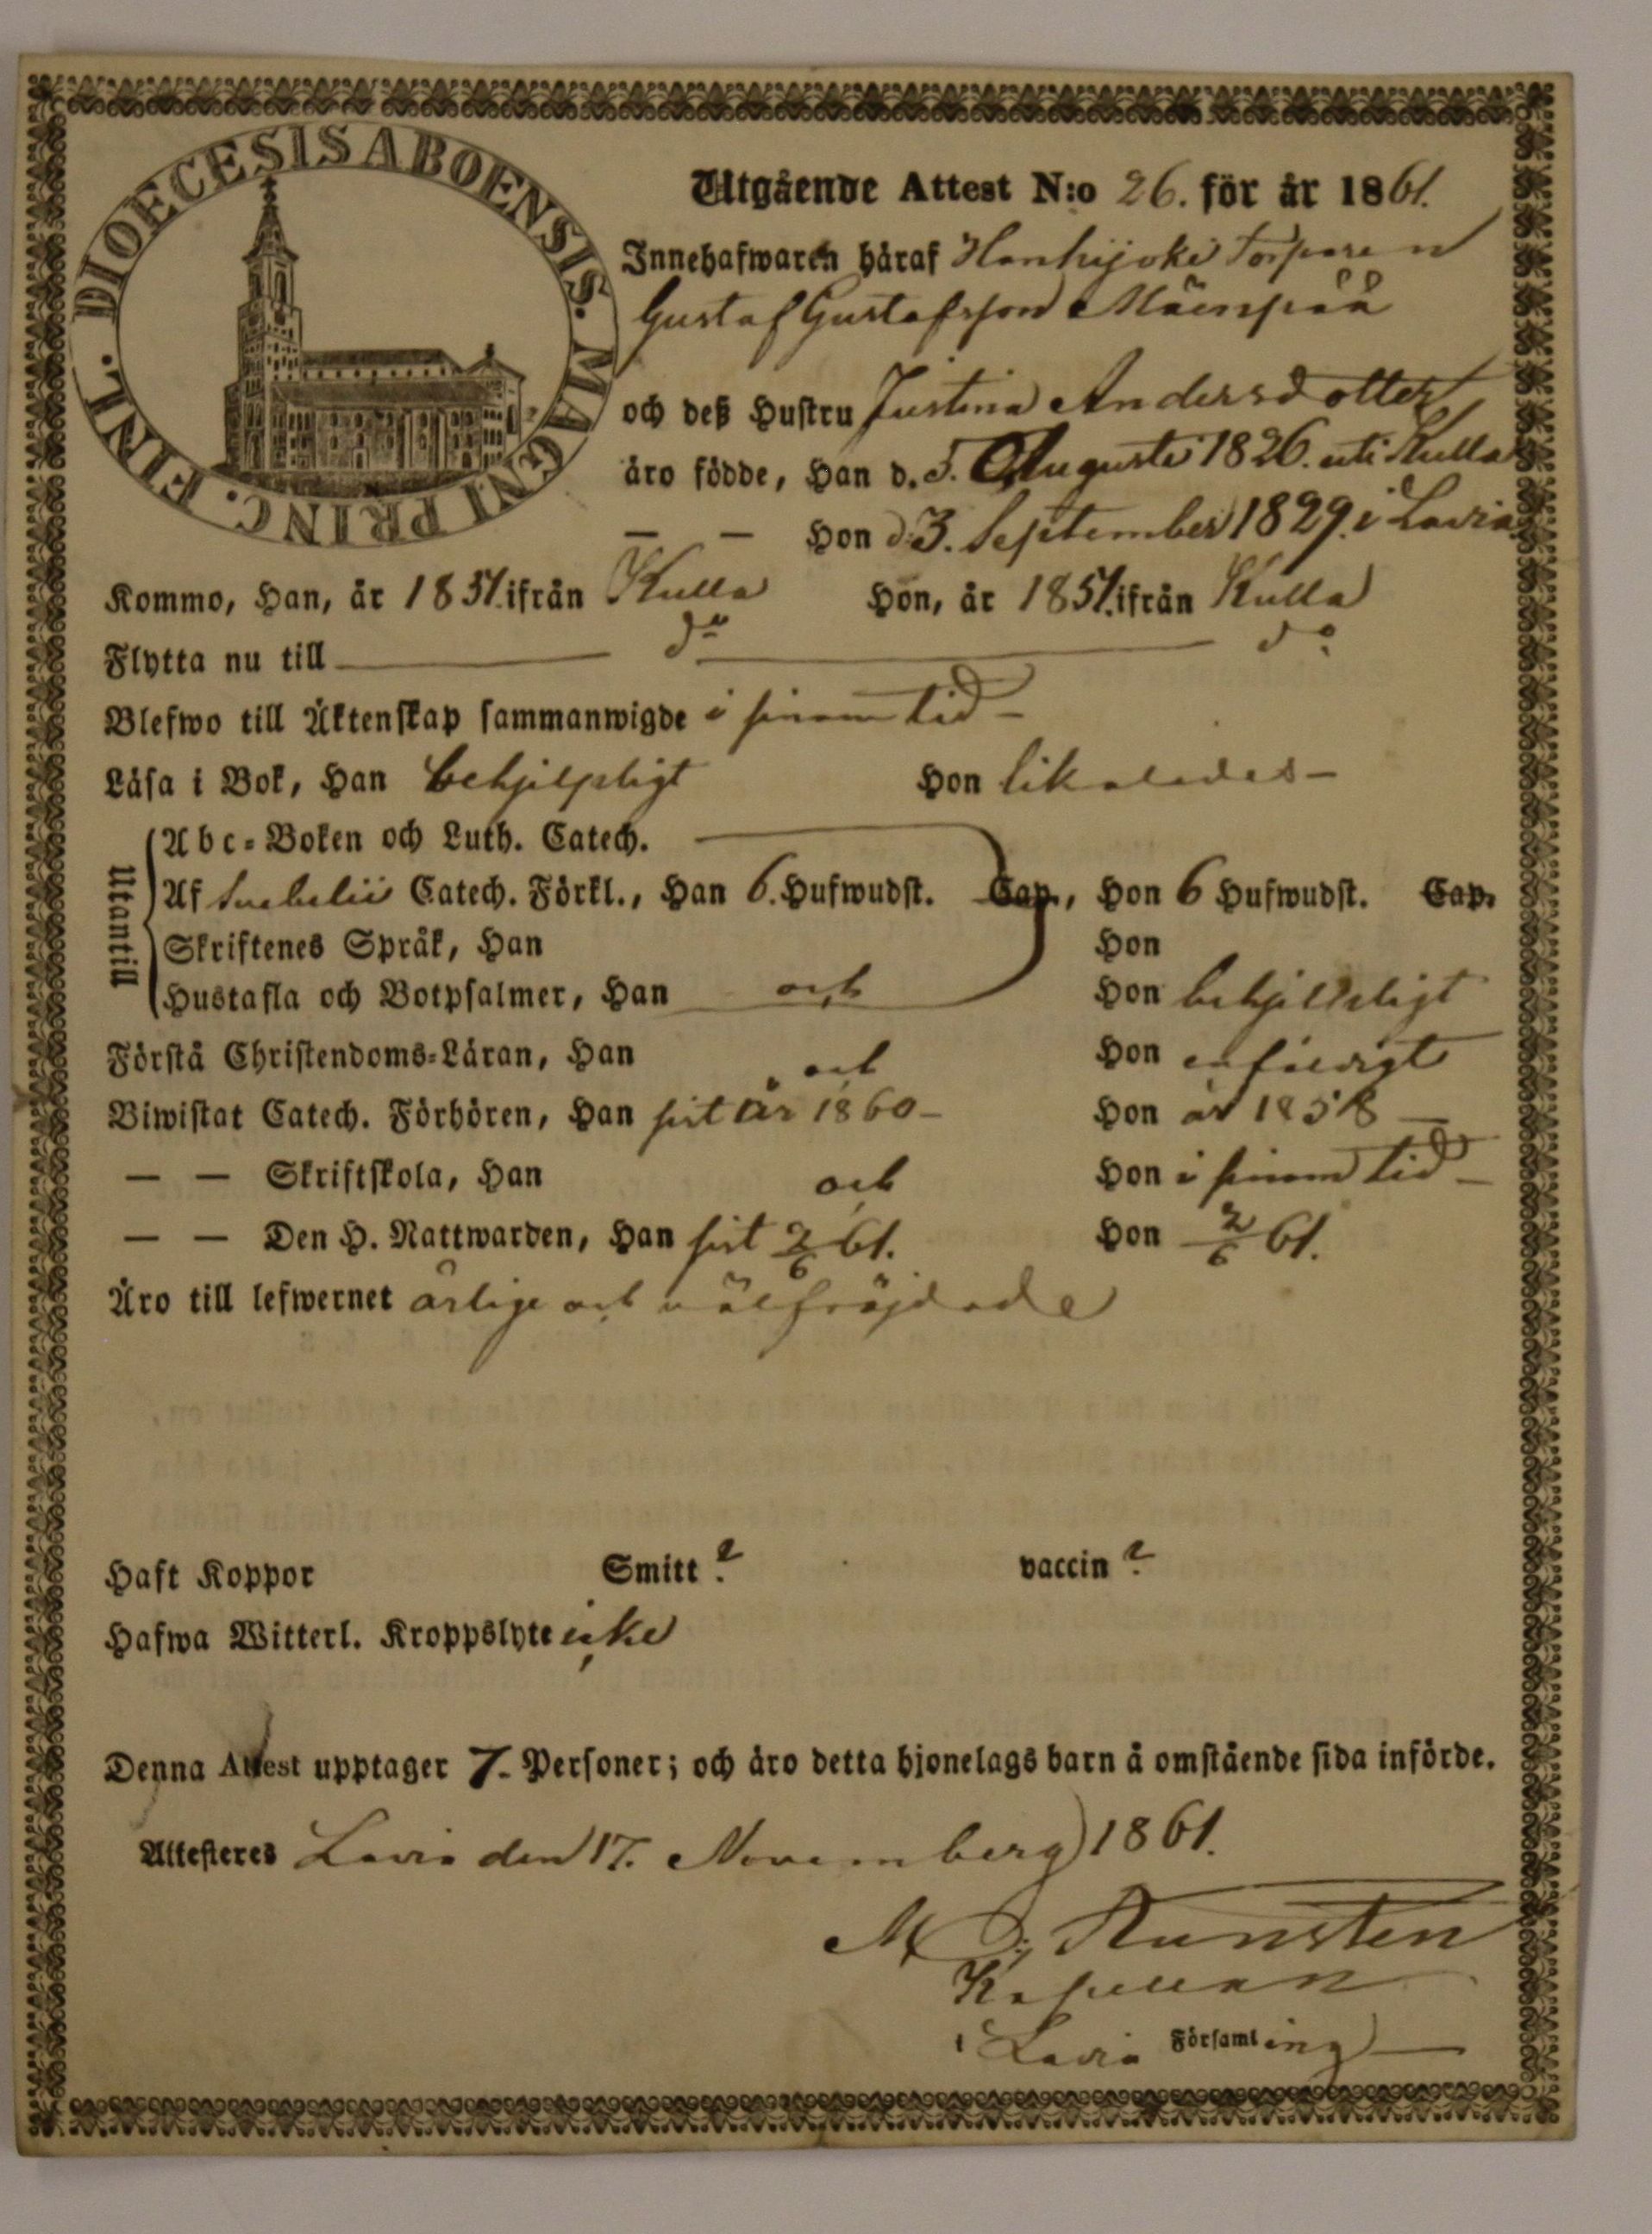 DIOECESIS ABOENSIS. MAGNI PRINC. FINL.
Utgående Attest N:o 26. för år 1861.
Innehafwaren häraf Honkijoki Torparen
Gustaf Gustafsson Mäenpää
och deß Hustru Justina Andersdotter
äro födde, Han d. 5. Augusti 1826. uti Kulla
— — Hon d. 3. September 1829. i Lavia
Kommo, Han, år 1851. ifrån Kulla Hon, år 1851. ifrån Kulla
Flytta nu till d:o d:o
Blefwo till Äktenskap sammanwigde i sinom tid —
Läsa i Bok, Han behjelpligt Hon likaledes —
Utantill
Abc-Boken och Luth. Catech.
Af Svebelii Catech. Förkl., Han 6. Hufwudst. Cap., Hon 6 Hufwudst. Cap.
Skriftenes Språk, Han Hon
Hustafla och Botpsalmer, Han och Hon behjelpligt
Förstå Christendoms-Läran, Han och Hon enfaldigt
Biwistat Catech. Förhören, Han sist år 1860 — Hon år 1858 —
— — Skriftskola, Han och Hon i sinom tid —
— — Den H. Nattwarden, Han sist 2/6 61. Hon 2/6 61.
Äro till lefwernet ärlige och välfräjdade
Haft Koppor Smitt ? vaccin ?
Hafwa Witterl. Kroppslyte icke
Denna Attest upptager 7. Personer; och äro detta hjonelags barn å omstående sida införde.
Attesteres Lavia den 17. November 1861.
Kapellan
i Lavia Församling —